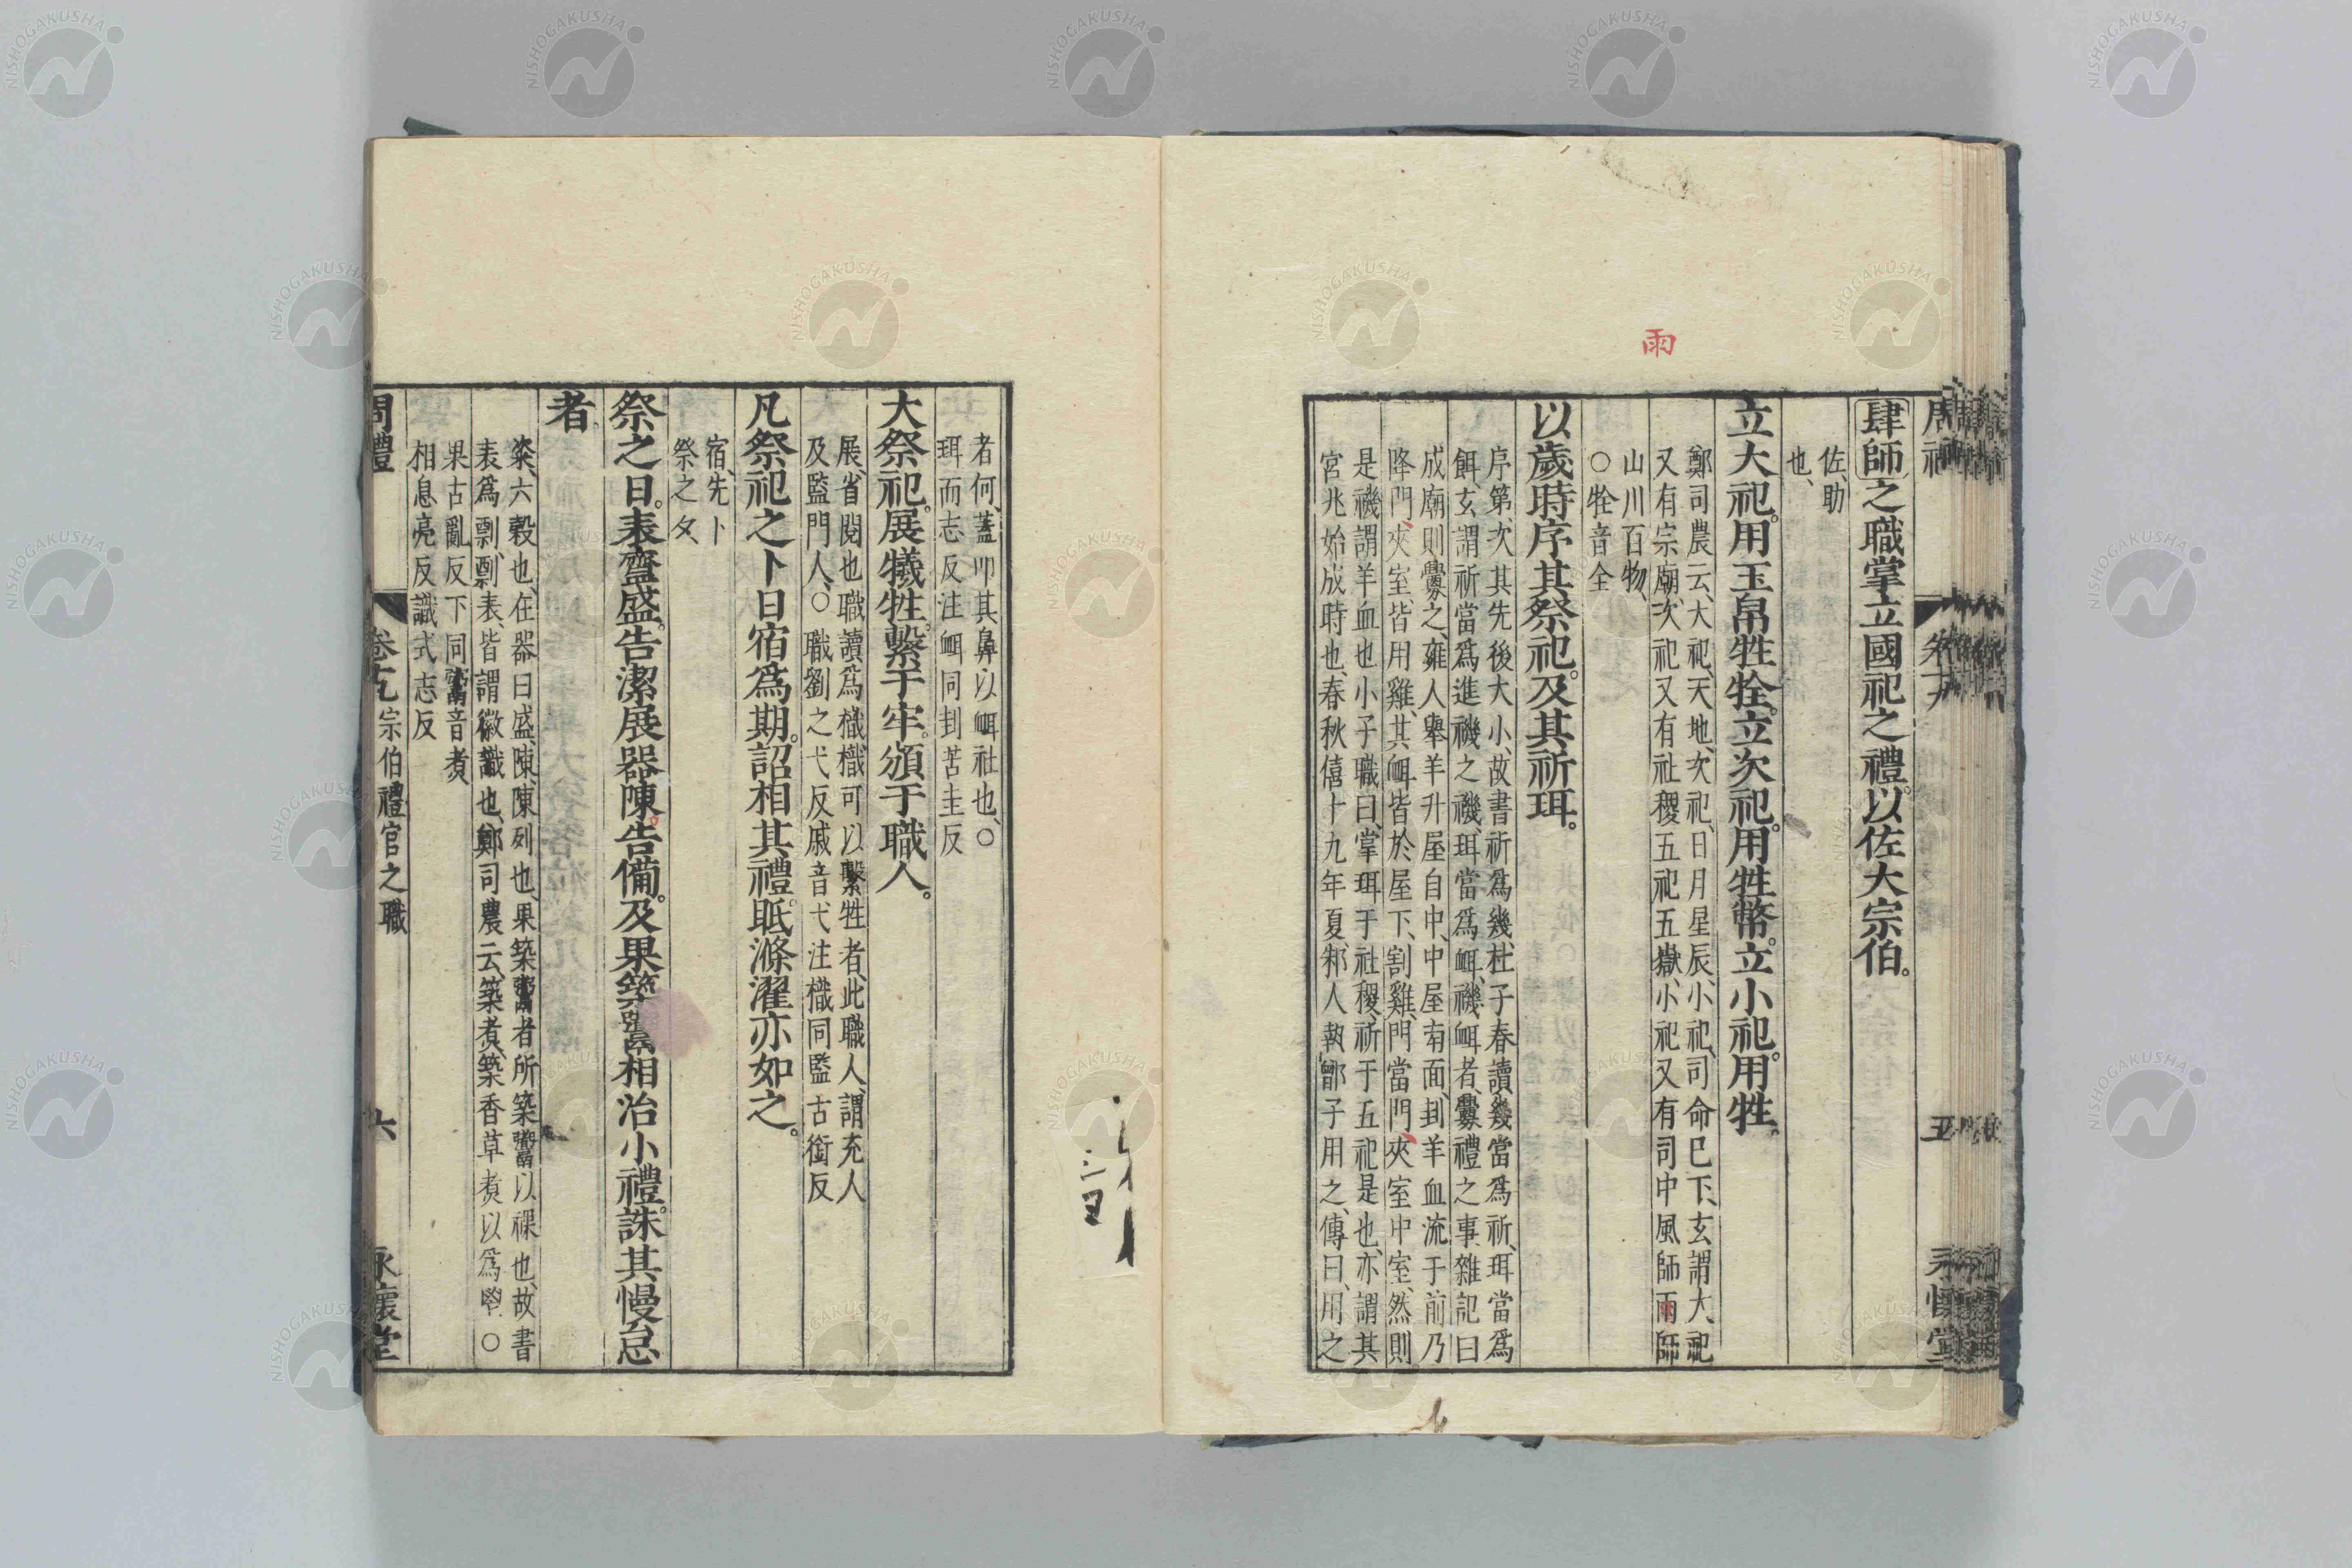 雨
肆師之職掌立國祀之禮。以佐大宗伯。
佐、助
也、
立大祀。用玉帛牲牷。立次祀。用牲幣。立小祀。用牲。
鄭司農云、大祀、天地、次祀、日月星辰、小祀、司命已下、玄謂大祀
又有宗廟、次祀又有社稷五祀五嶽、小祀又有司中風師雨師
山川百物、
○牷音全
以歲時序其祭祀。及其祈珥。
序第、次其先後大小、故書祈爲幾、杜子春讀幾當爲祈、珥當爲
餌、玄謂祈當爲進禨之禨、珥當爲衈、禨衈者、釁禮之事、雜記曰
成廟則釁之、雍人舉羊升屋自中、中屋南面、刲羊血流于前乃
降、門、夾室皆用雞、其衈皆於屋下、割雞、門當門、夾室中室、然則
是禨謂羊血也、小子職曰、掌珥于社稷、祈于五祀是也、亦謂其
宮兆始成時也、春秋僖十九年夏、邾人執鄫子用之、傳曰、用之
者何、蓋叩其鼻以衈社也、○
珥而志反注衈同刲苦圭反
大祭祀。展犧牲。繫于牢。頒于職人。
展、省閱也、職讀爲樴、樴可以繫牲者、此職人、謂充人
及監門人、○職劉之弋反戚音弋注樴同監古銜反
凡祭祀之卜日宿爲期。詔相其禮。眡滌濯亦如之。
宿、先卜
祭之夕、
祭之日。表齍盛。告潔展器陳。告備。及果築鬻相治小禮。誅其慢怠
者
粢、六穀也、在器曰盛、陳、陳列也、果築鬻者所築鬻以祼也、故書
表爲剽、剽表、皆謂徽識也、鄭司農云、築煑、築香草煑以爲鬯、○
果古亂反下同鬻音煑
相息亮反識式志反
周禮
宗伯禮官之職
六
永懷堂